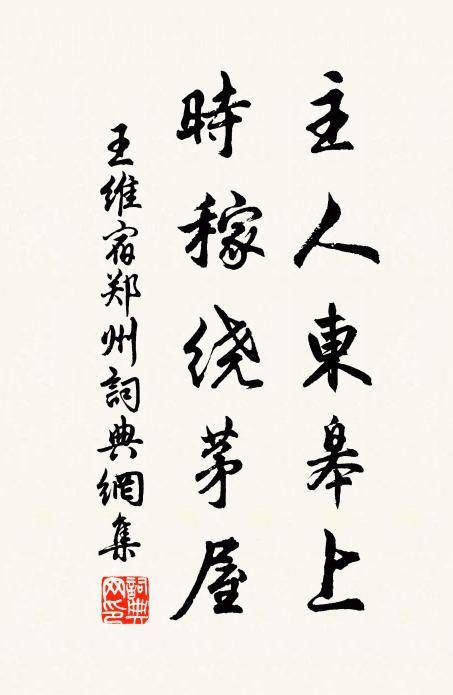 主人東皋上
時稼绕茅屋
王维宿郑州詞典網集
詞典网印